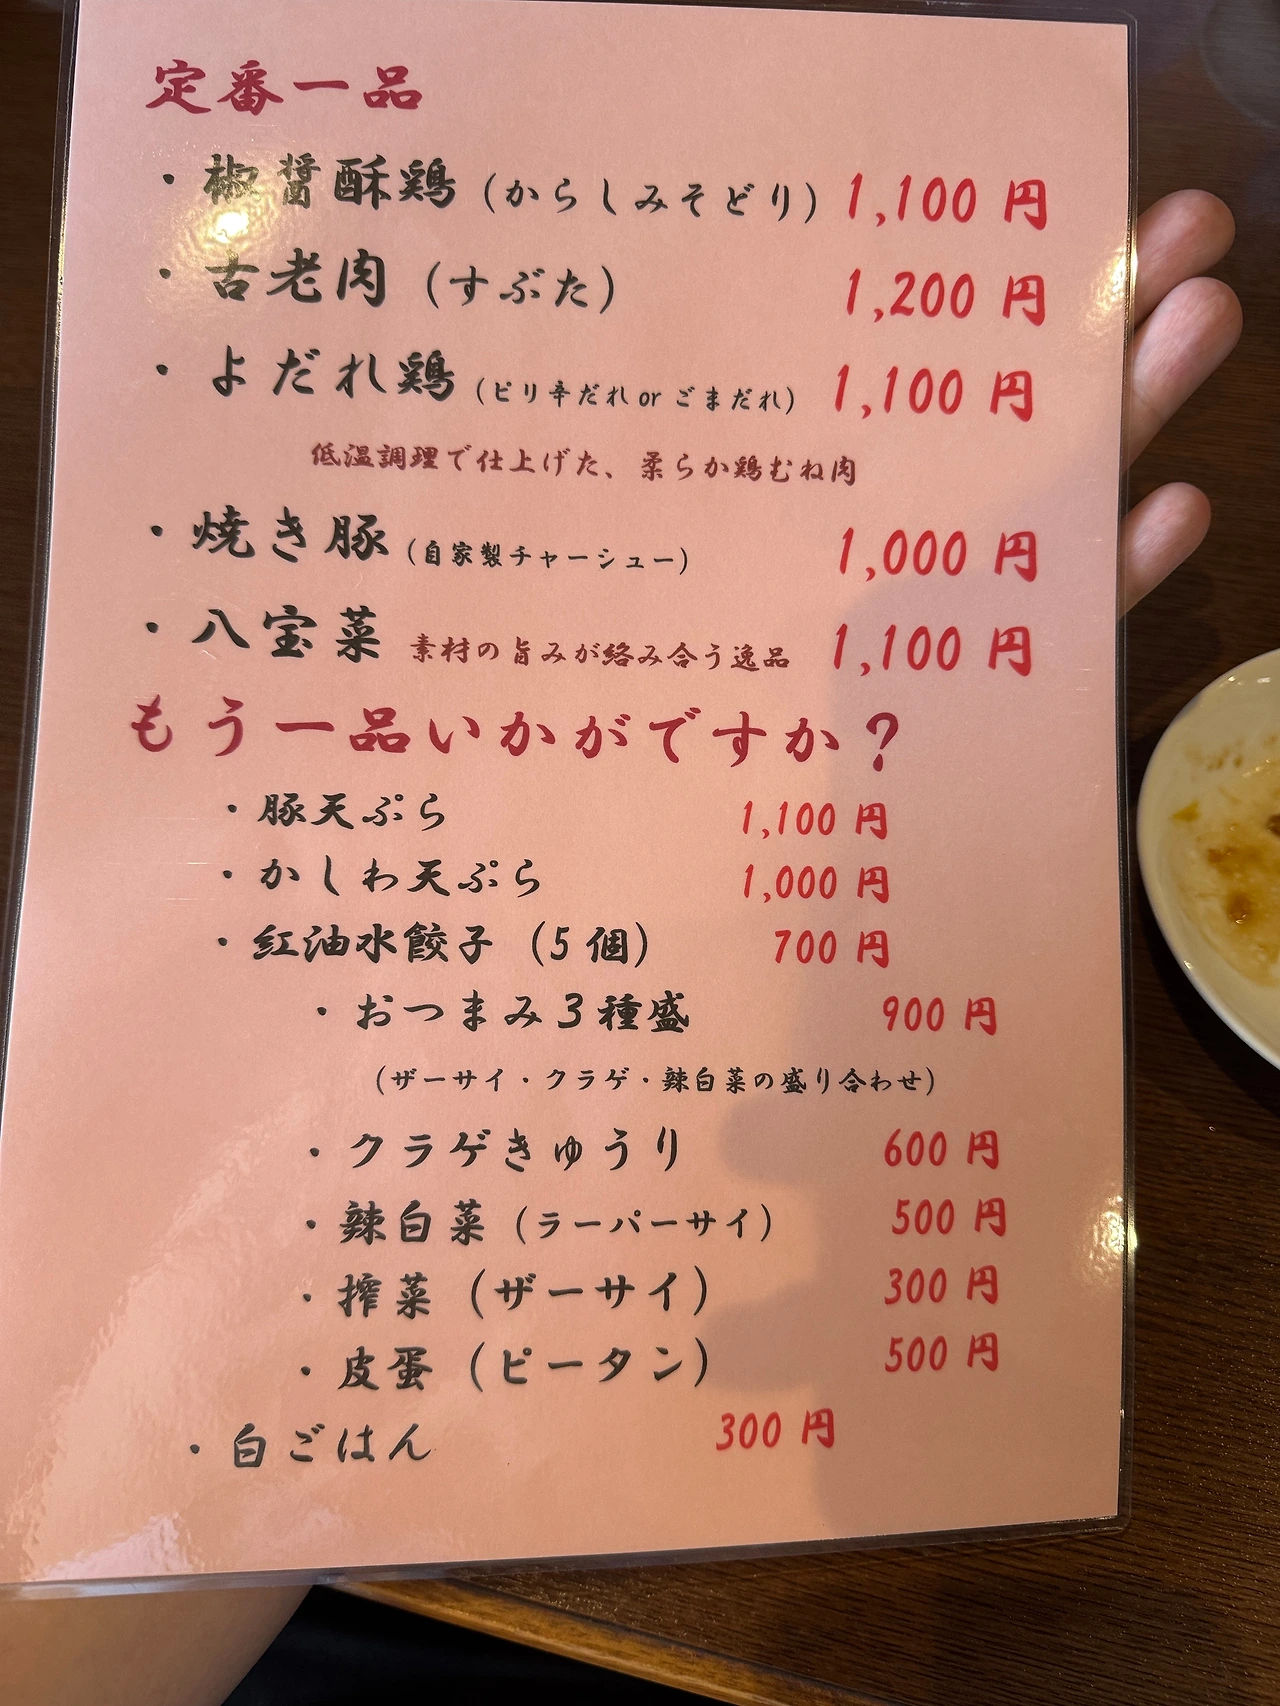 定番一品
・椒醤酥鶏（からしみそどり） 1,100 円
・古老肉（すぶた） 1,200 円
・よだれ鶏（ピリ辛だれ or ごまだれ） 1,100 円
低温調理で仕上げた、柔らか鶏むね肉
・焼き豚（自家製チャーシュー） 1,000 円
・八宝菜 素材の旨みが絡み合う逸品 1,100 円
もう一品いかがですか？
・豚天ぷら 1,100 円
・かしわ天ぷら 1,000 円
・紅油水餃子（5個） 700 円
・おつまみ3種盛 900 円
（ザーサイ・クラゲ・辣白菜の盛り合わせ）
・クラゲきゅうり 600 円
・辣白菜（ラーパーサイ） 500 円
・搾菜（ザーサイ） 300 円
・皮蛋（ピータン） 500 円
・白ごはん 300 円